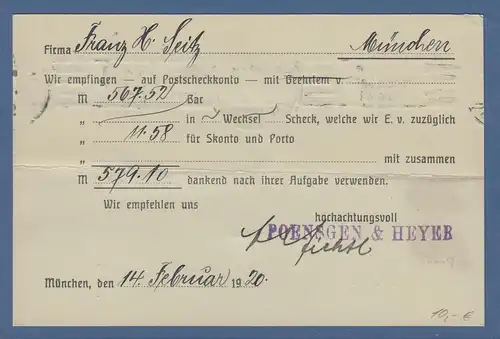 Firma Franz X. Seitz München
Wir empfingen — auf Postscheckkonto — mit Geehrtem v.
M 567.52 Bar
„ in Wechsel Scheck, welche wir E. v. zuzüglich
„ 11.58 für Skonto und Porto
„ mit zusammen
M 579.10 dankend nach ihrer Aufgabe verwenden.
Wir empfehlen uns
hochachtungsvoll
POENSGEN & HEYER
München, den 14. Februar 1920.
10,- €